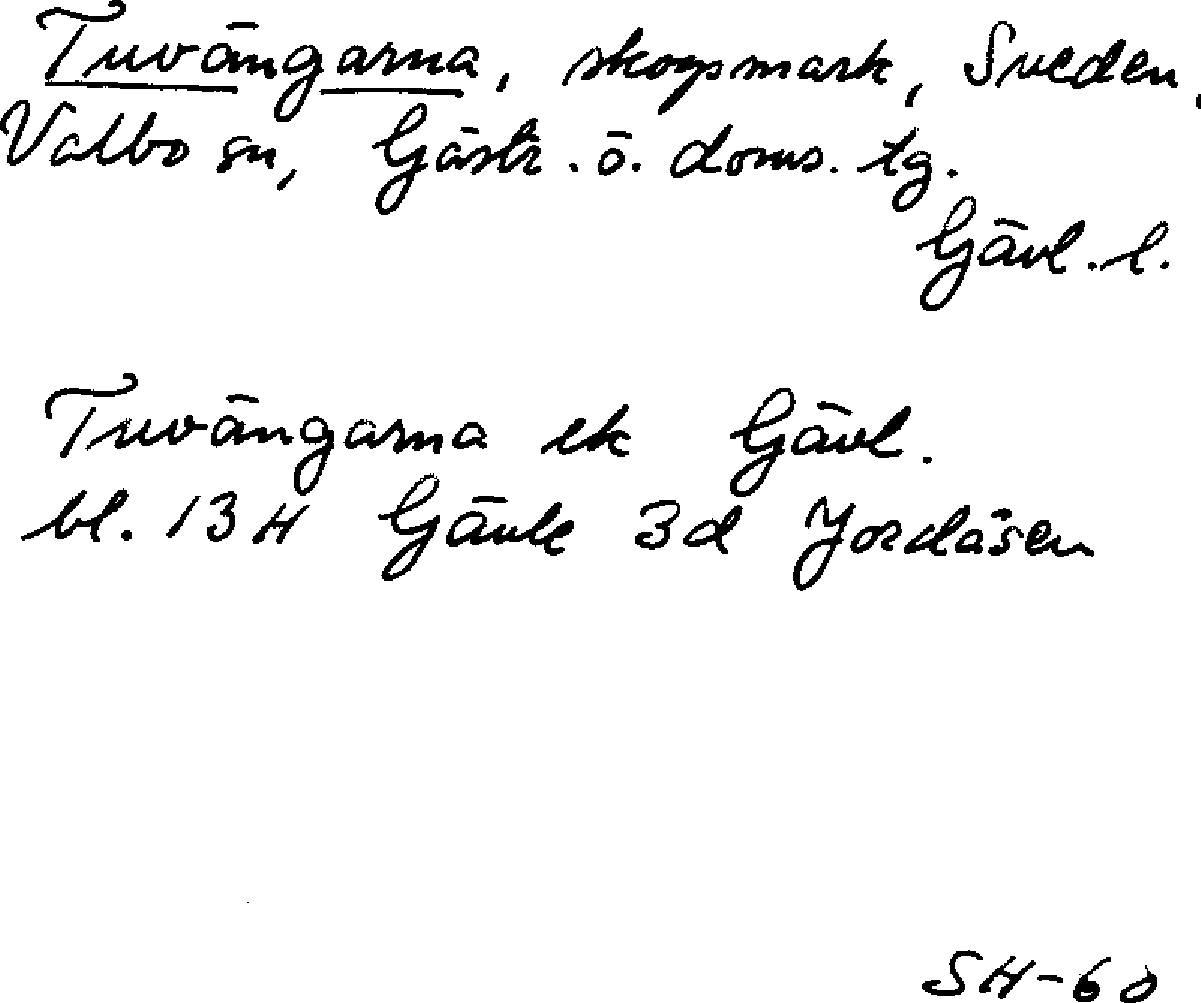 Tuvängarna, skogsmark, Sveden,
Valbo sn, Gästr. ö. doms. tg.
Gävl. l.
Tuvängarna ek Gävl.
bl. 13H Gävle 3d Jordåsen
SH-60